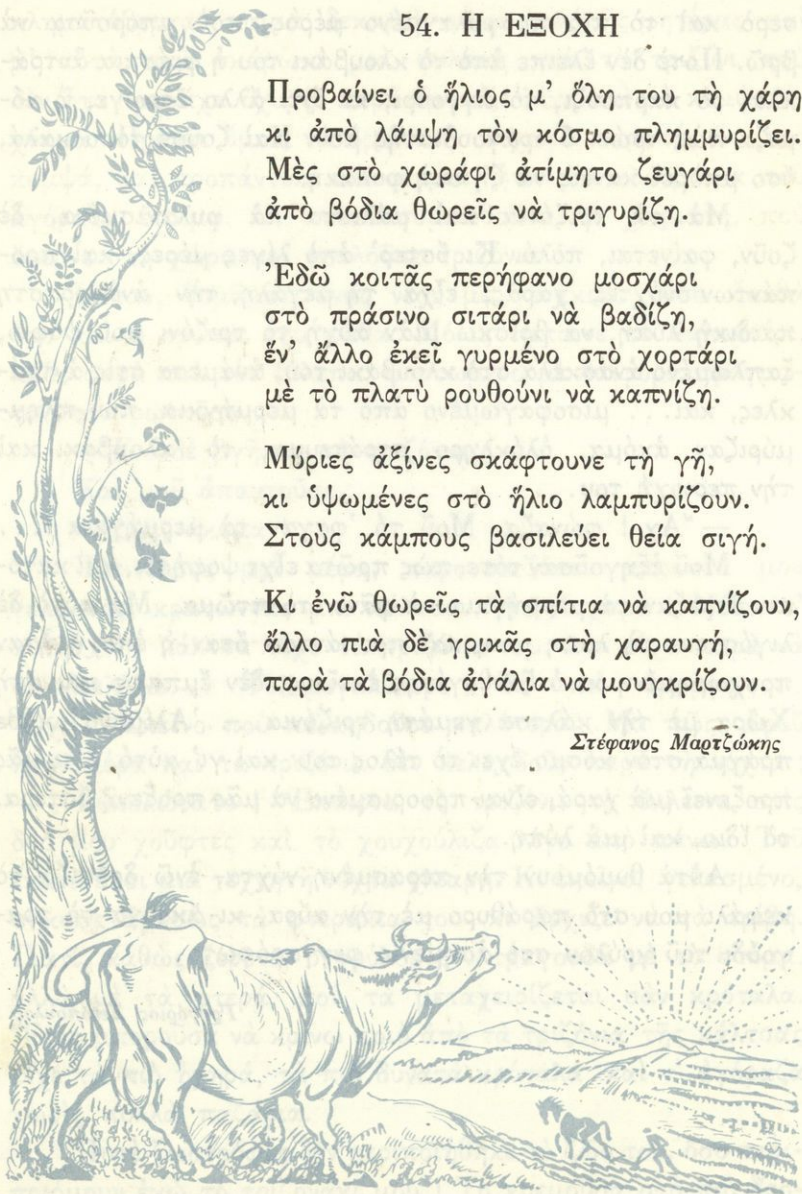 54. Η ΕΞΟΧΗ
Προβαίνει ὁ ἥλιος μ' ὅλη του τὴ χάρη
κι ἀπὸ λάμψη τὸν κόσμο πλημμυρίζει.
Μὲς στὸ χωράφι ἀτίμητο ζευγάρι
ἀπὸ βόδια θωρεῖς νὰ τριγυρίζη.
Ἐδῶ κοιτᾶς περήφανο μοσχάρι
στὸ πράσινο σιτάρι νὰ βαδίζη,
ἕν' ἄλλο ἐκεῖ γυρμένο στὸ χορτάρι
μὲ τὸ πλατὺ ρουθούνι νὰ καπνίζη.
Μύριες ἀξίνες σκάφτουνε τὴ γῆ,
κι ὑψωμένες στὸ ἥλιο λαμπυρίζουν.
Στοὺς κάμπους βασιλεύει θεία σιγή.
Κι ἐνῶ θωρεῖς τὰ σπίτια νὰ καπνίζουν,
ἄλλο πιὰ δὲ γρικᾶς στὴ χαραυγή,
παρὰ τὰ βόδια ἀγάλια νὰ μουγκρίζουν.
Στέφανος Μαρτζώκης